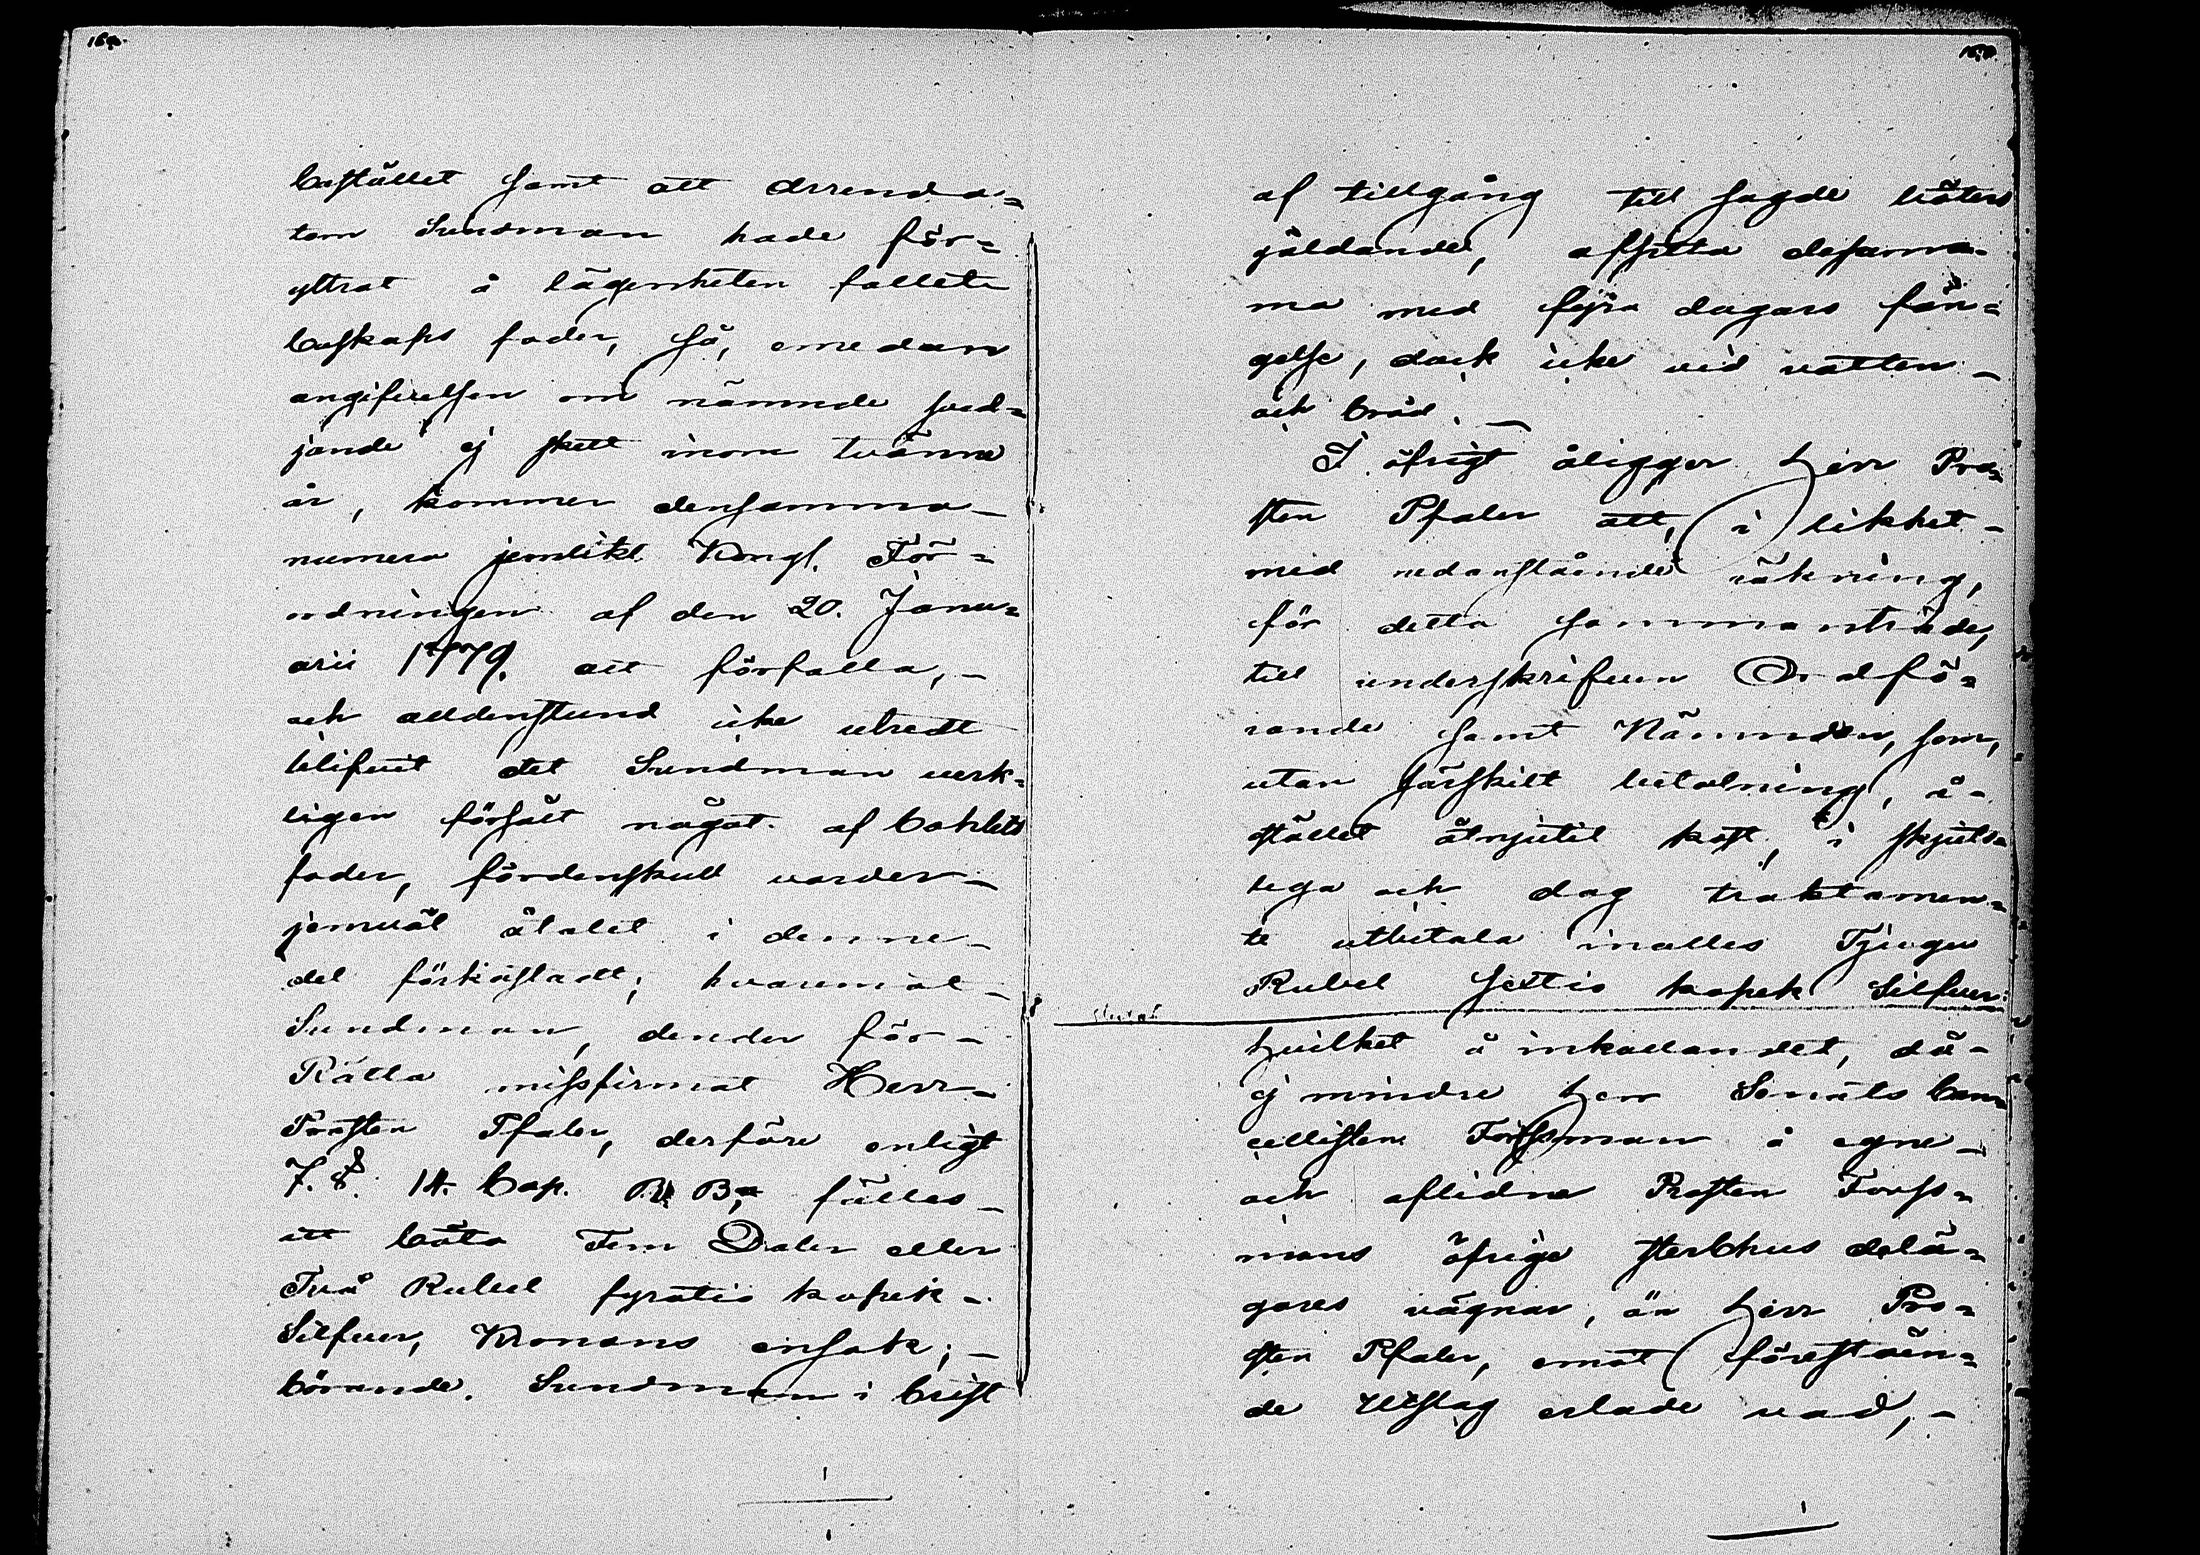 bostället samt att arrenda=
torn Sundman hade för=
yttrat å lägenheten fallete
boskaps foder, så, emedan
angifvelsen om nämnde sved=
jande ej skett inom tvänne
år, kommer densamma
numera jemlikt Kongl. För=
ordningen af den 20. Janu=
arii 1779. att förfalla,
och alldenstund icke utredt
blifvit det Sundman verk=
ligen försålt något af bohlets
foder, fördenskull varder
jemväl åtalet i denne
del förkastadt; hvaremot
Sundman, den der för
Rätta missfirmat Herr
Prosten Pfaler, derföre enligt
7. §. 14. Cap. R. B. fälles
att böta Fem Daler eller
Två Rubel fyratio kopek
Silfver, Kronans ensak;
börande Sundman i brist
af tillgång till sagde böters
gäldande, afsitta desam=
ma med fyra dagars fän=
gelse, dock icke vid vatten
och bröd.
I öfrigt åligger Herr Pro=
sten Pfaler att, i likhet
med nedanstående räkning,
för detta sammanträde,
till underskrifven Ordfö=
rande samt Nämnden, som,
utan särskilt betalning, å
stället åtnjutit kost, i skjuts
lega och dag traktamen=
te utbetala inalles Tjugu
Rubel sextio kopek Silfver.
Hvilket å inkallandet, då
ej mindre Herr Senats Can=
cellisten Forssman å egne
och aflidne Prosten Forss=
mans öfrige sterbhus delä=
gares vägnar, än Herr Pro=
sten Pfaler, emot förestäen=
de Utslag erlade vad,